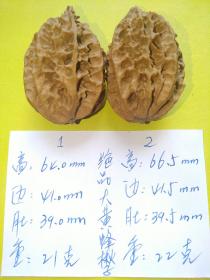 1
高: 64.0mm
边: 41.0mm
肚: 39.0mm
重: 21克
绝品大
2
高: 66.5mm
边: 41.5mm
肚: 39.5mm
重: 22克